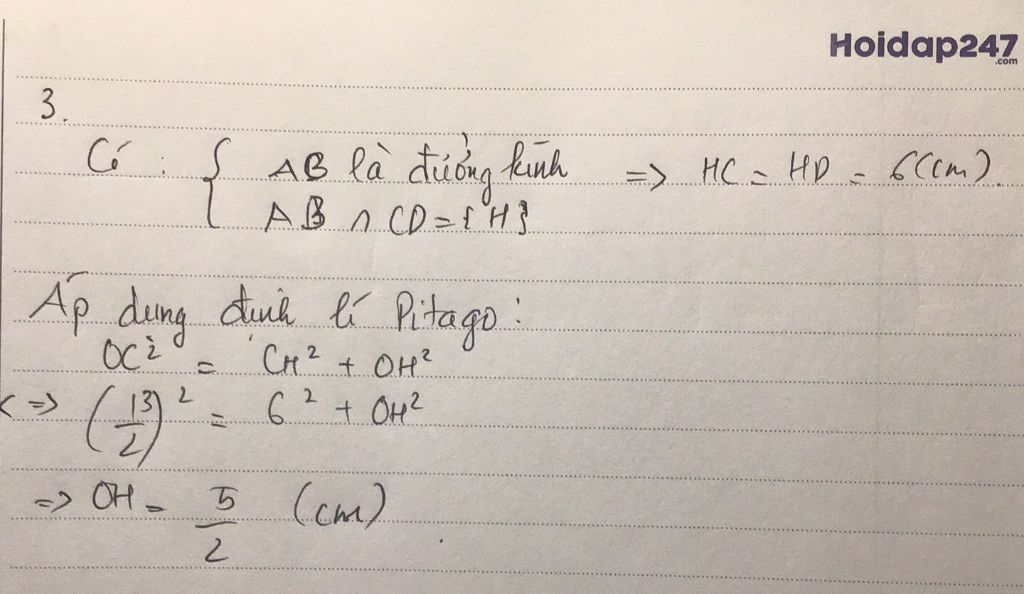 Hoidap247
.com
3.
Có : { AB là đường kính => HC = HD = 6(cm).
AB ∩ CD = {H}
Áp dụng định lí Pitago :
OC² = CH² + OH²
<=> (13/2)² = 6² + OH²
=> OH = 5/2 (cm)